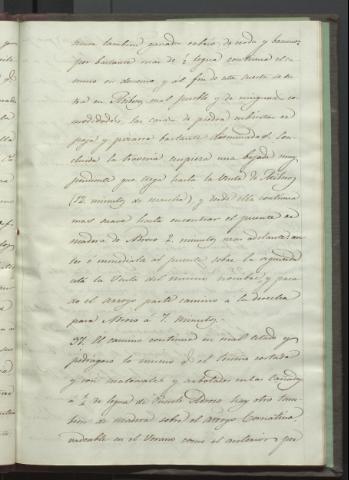 tiene tambien ganado cabrio, de cerda y bacuno,
por bastante mas de ½ legua continua el ca-
mino en descenso y al fin de esta cuesta se en-
tra en mal pueblo y de ninguna co-
modidad, las casas de piedra cubiertas de
paja y pizarra bastante desunidas. Con-
cluida la travesia empieza una bajada muy
pendiente que llega hasta la Venta de
(12 minutos de marcha) y desde ella continua
mas suave hasta encontrar el puente de
madera de 2 minutos mas adelante an-
tes é inmediata al puente sobre la izquierda
está la Venta del mismo nombre, y pasa-
do el arroyo parte camino a la derecha
para á 7 minutos.
37. El camino continua en mal estado y
pedregoso lo mismo q.e el terreno cortado
y con matorrales y arbolados en las cañadas
á ½ de legua de Puente hay otro tam-
bien de madera sobre el arroyo
vadeable en el Verano como el anterior por